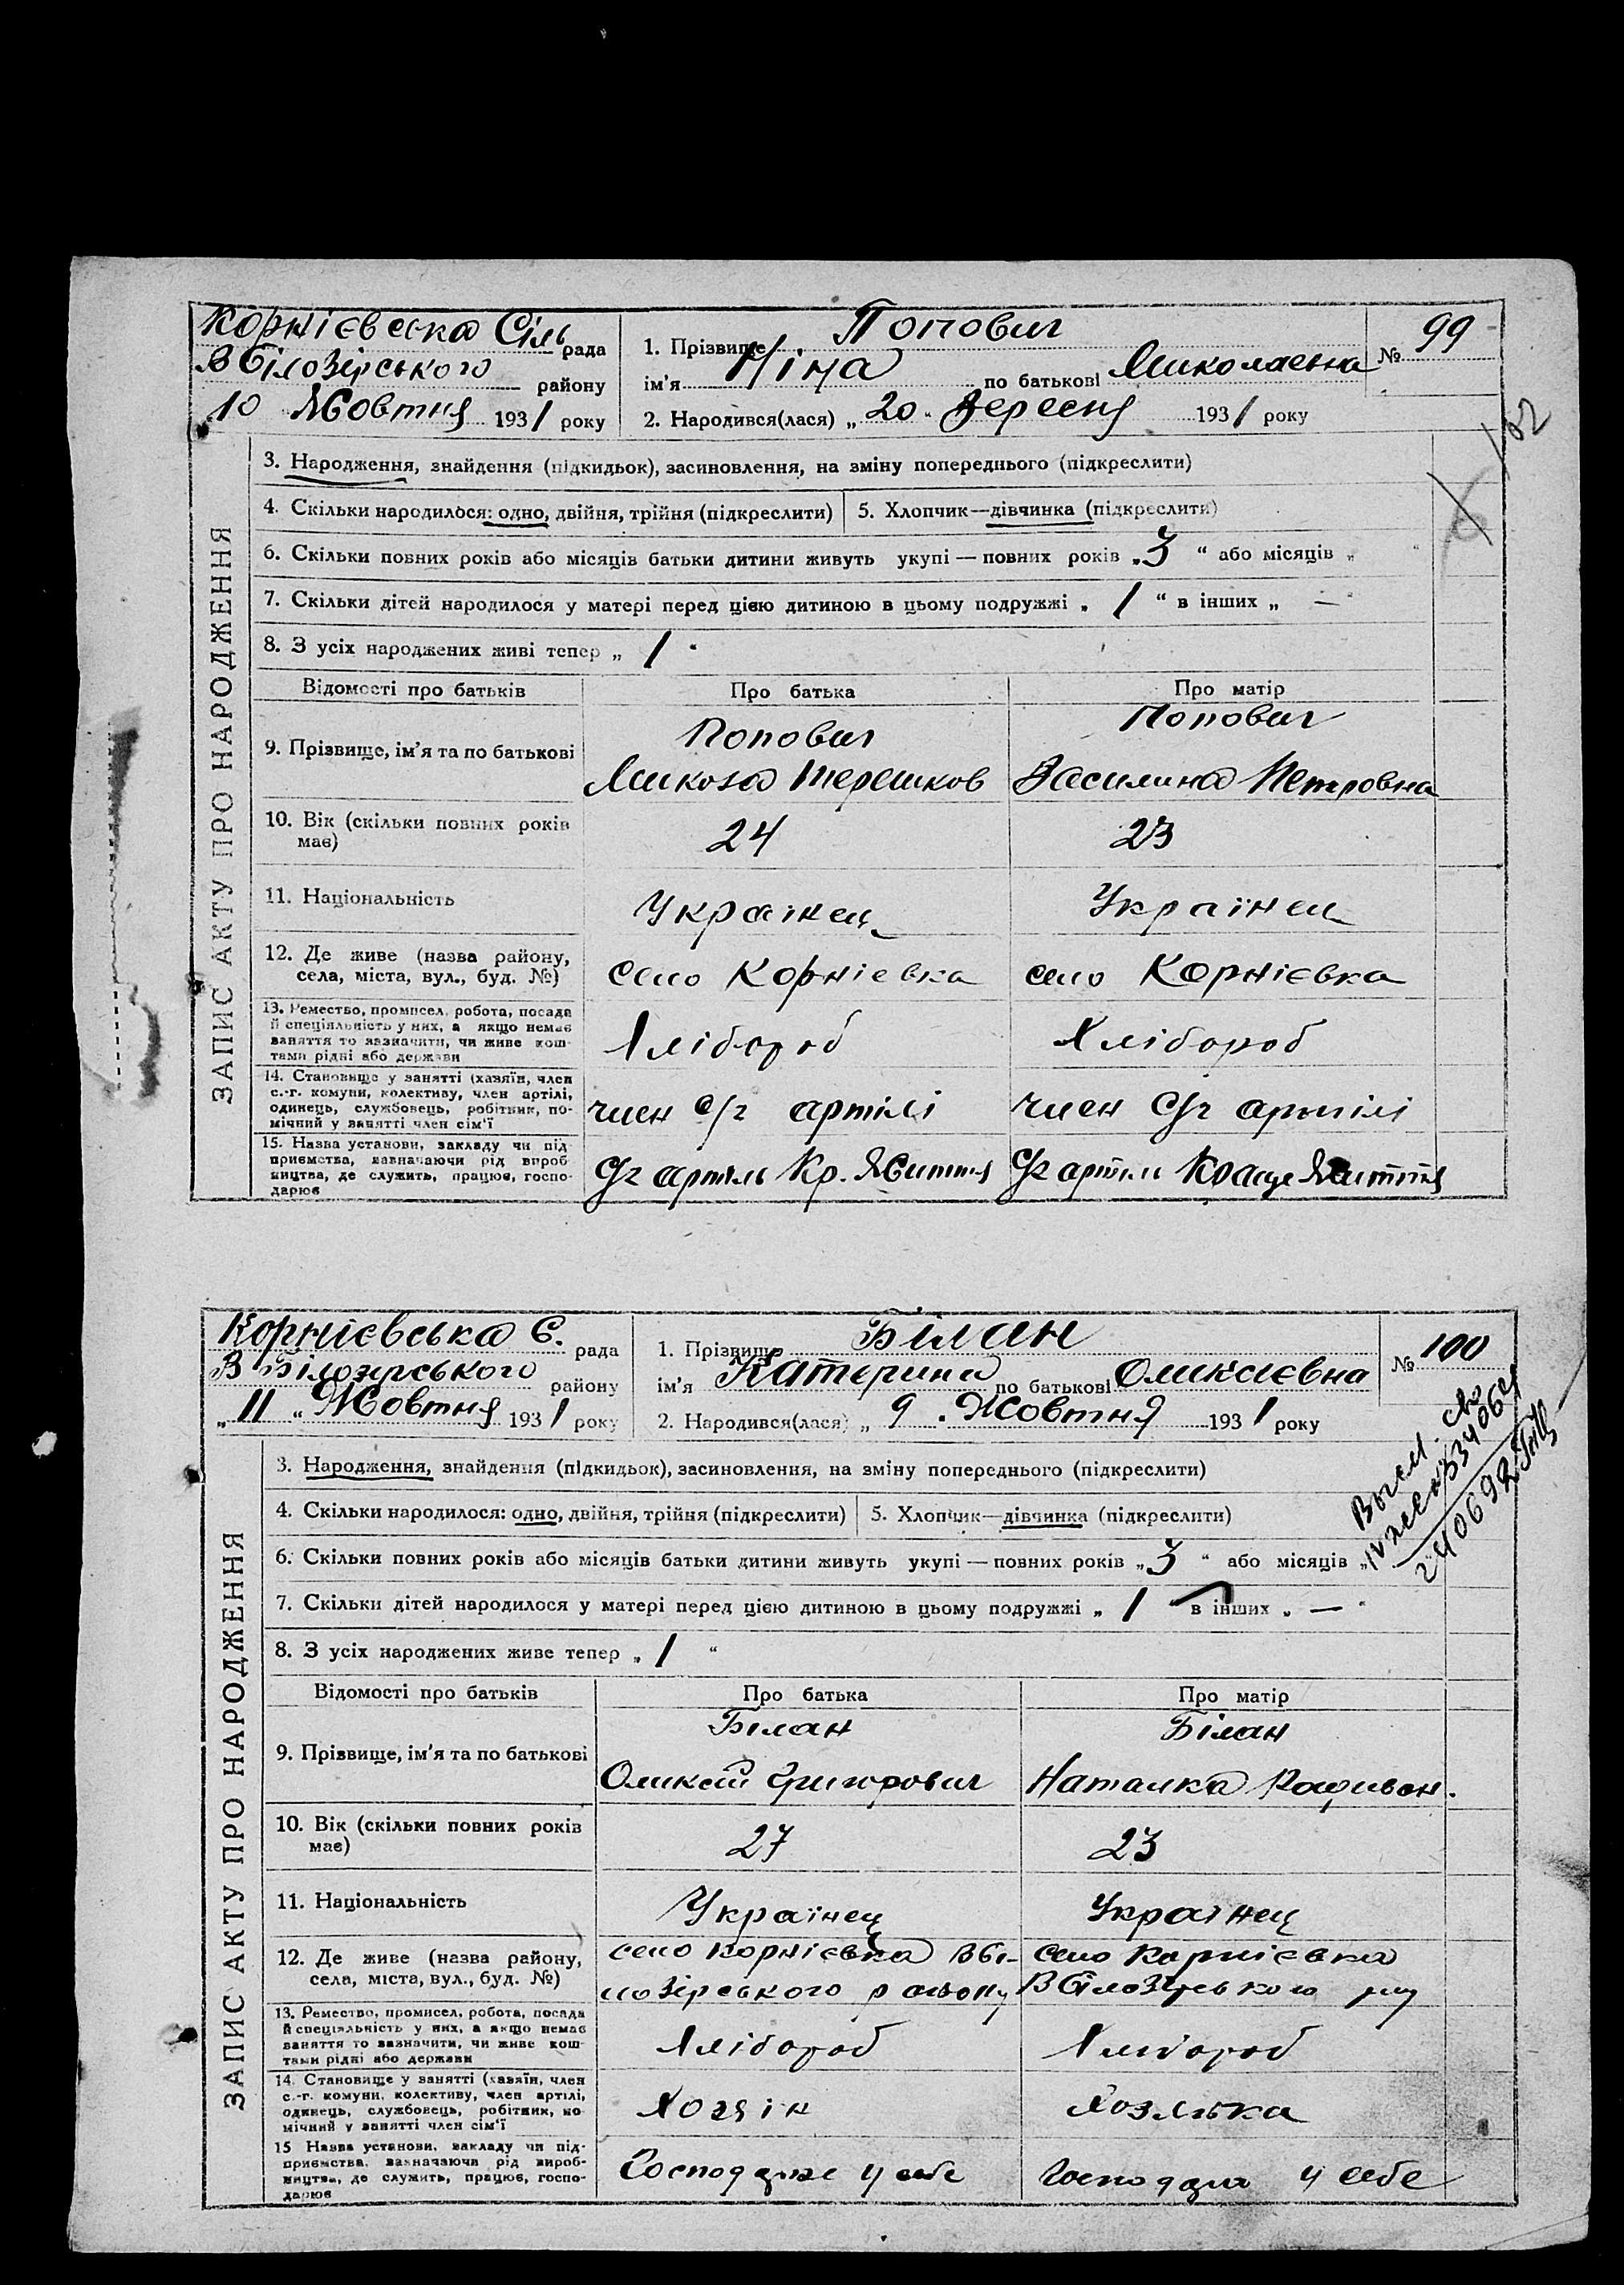 Корнієвська Сіль рада
В Білозірського району
10 Жовтня 1931 року
1. Прізвище Попович
ім'я Ніна по батькові Миколаєвна
2. Народився(лася) „ 20 " Вересня 1931 року
№ 99
102
ЗАПИС АКТУ ПРО НАРОДЖЕННЯ
3. Народження, знайдення (підкидьок), засиновлення, на зміну попереднього (підкреслити)
4. Скільки народилося: одно, двійня, трійня (підкреслити) 5. Хлопчик—дівчинка (підкреслити)
6. Скільки повних років або місяців батьки дитини живуть укупі — повних років „ 3 " або місяців „ "
7. Скільки дітей народилося у матері перед цією дитиною в цьому подружжі „ 1 " в інших „ —
8. З усіх народжених живі тепер „ 1 "
Відомості про батьків Про батька Про матір
9. Прізвище, ім'я та по батькові
Попович
Микола Терешков
Попович
Василина Петровна
10. Вік (скільки повних років має)
24 23
11. Національність
Українец Українец
12. Де живе (назва району,
села, міста, вул., буд. №)
село Корніевка село Корнієвка
13. Ремество, промисел, робота, посада
й спеціяльність у них, а якщо немає
заняття то зазначити, чи живе кош-
тами рідні або держави
Хлібороб Хлібороб
14. Становище у занятті (хазяїн, член
с.-г. комуни, колективу, член артілі,
одинець, службовець, робітник, по-
мічний у занятті член сім'ї
член с/г артілі член с/г артілі
15. Назва установи, закладу чи під-
приємства, зазначаючи рід вироб-
ництва, де служить, працює, госпо-
дарює
С/г артіль Кр. Життя С/г артіли Краще Життя
Корнієвська С. рада
В Білозірського району
„ 11 " Жовтня 1931 року
1. Прізвище Білан
ім'я Катерина по батькові Оликсієвна
2. Народився(лася) „ 9 " Жовтня 1931 року
№ 100
ЗАПИС АКТУ ПРО НАРОДЖЕННЯ
3. Народження, знайдення (підкидьок), засиновлення, на зміну попереднього (підкреслити)
4. Скільки народилося: одно, двійня, трійня (підкреслити) 5. Хлопчик—дівчинка (підкреслити)
6. Скільки повних років або місяців батьки дитини живуть укупі — повних років „ 3 " або місяців „
7. Скільки дітей народилося у матері перед цією дитиною в цьому подружжі „ 1 " в інших „ — "
8. З усіх народжених живе тепер „ 1 "
Відомості про батьків Про батька Про матір
9. Прізвище, ім'я та по батькові
Білан
Оликсій Григорович
Білан
Наталка
10. Вік (скільки повних років
має)
27 23
11. Національність
Українец Українец
12. Де живе (назва району,
села, міста, вул., буд. №)
село Корнієвка В Бі-
лозірського району
село Корнієвка
В Білозірського р-ну
13. Ремество, промисел, робота, посада
й спеціяльність у них, а якщо немає
заняття то зазначити, чи живе кош-
тами рідні або держави
Хлібороб Хлібороб
14. Становище у занятті (хазяїн, член
с.-г. комуни, колективу, член артілі,
одинець, службовець, робітник, по-
мічний у занятті член сім'ї
Хозяін Хозяїка
15 Назва установи, закладу чи під-
приємства, зазначаючи рід вироб-
ництва, де служить, працює, госпо-
дарює
у себе у себе